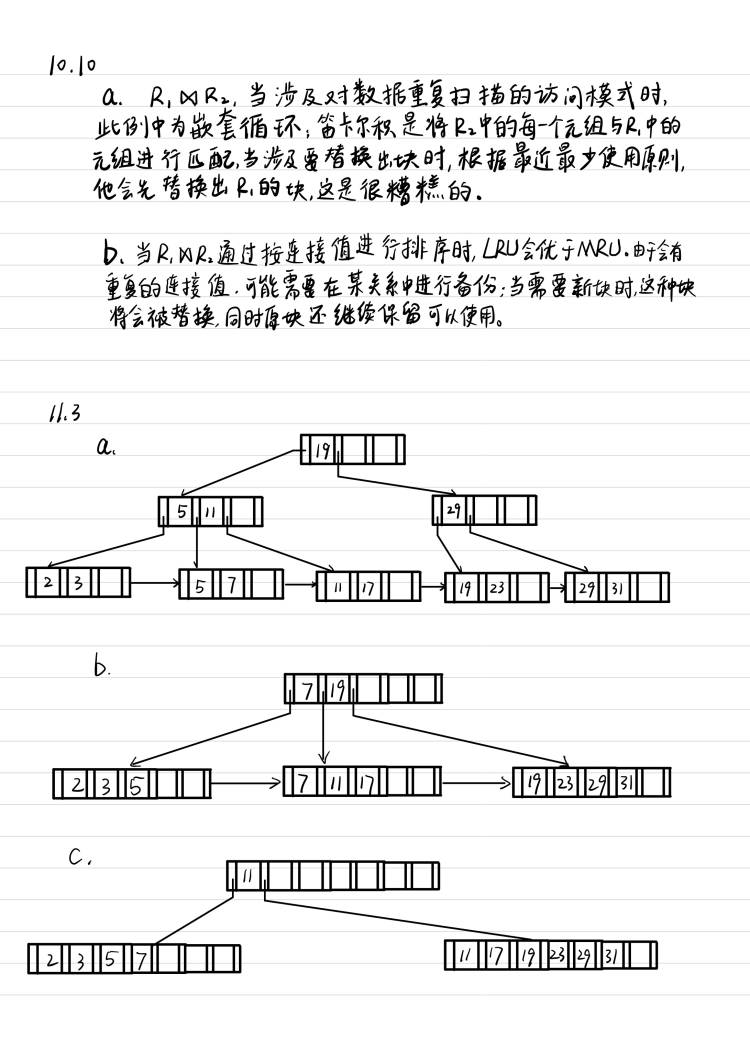 10.10
a. R₁⋈R₂,当涉及对数据重复扫描的访问模式时,
此例中为嵌套循环,笛卡尔积是将R₂中的每一个元组与R₁中的
元组进行匹配,当涉及要替换出块时,根据最近最少使用原则,
他会先替换出R₁的块,这是很糟糕的.
b、当R₁⋈R₂通过按连接值进行排序时,LRU会优于MRU.由于会有
重复的连接值.可能需要在某关系中进行备份;当需要新块时,这种块
将会被替换,同时原块还继续保留可以使用。
11.3
a.
19
5 11 29
2 3 5 7 11 17 19 23 29 31
b.
7 19
2 3 5 7 11 17 19 23 29 31
c.
11
2 3 5 7 11 17 19 23 29 31